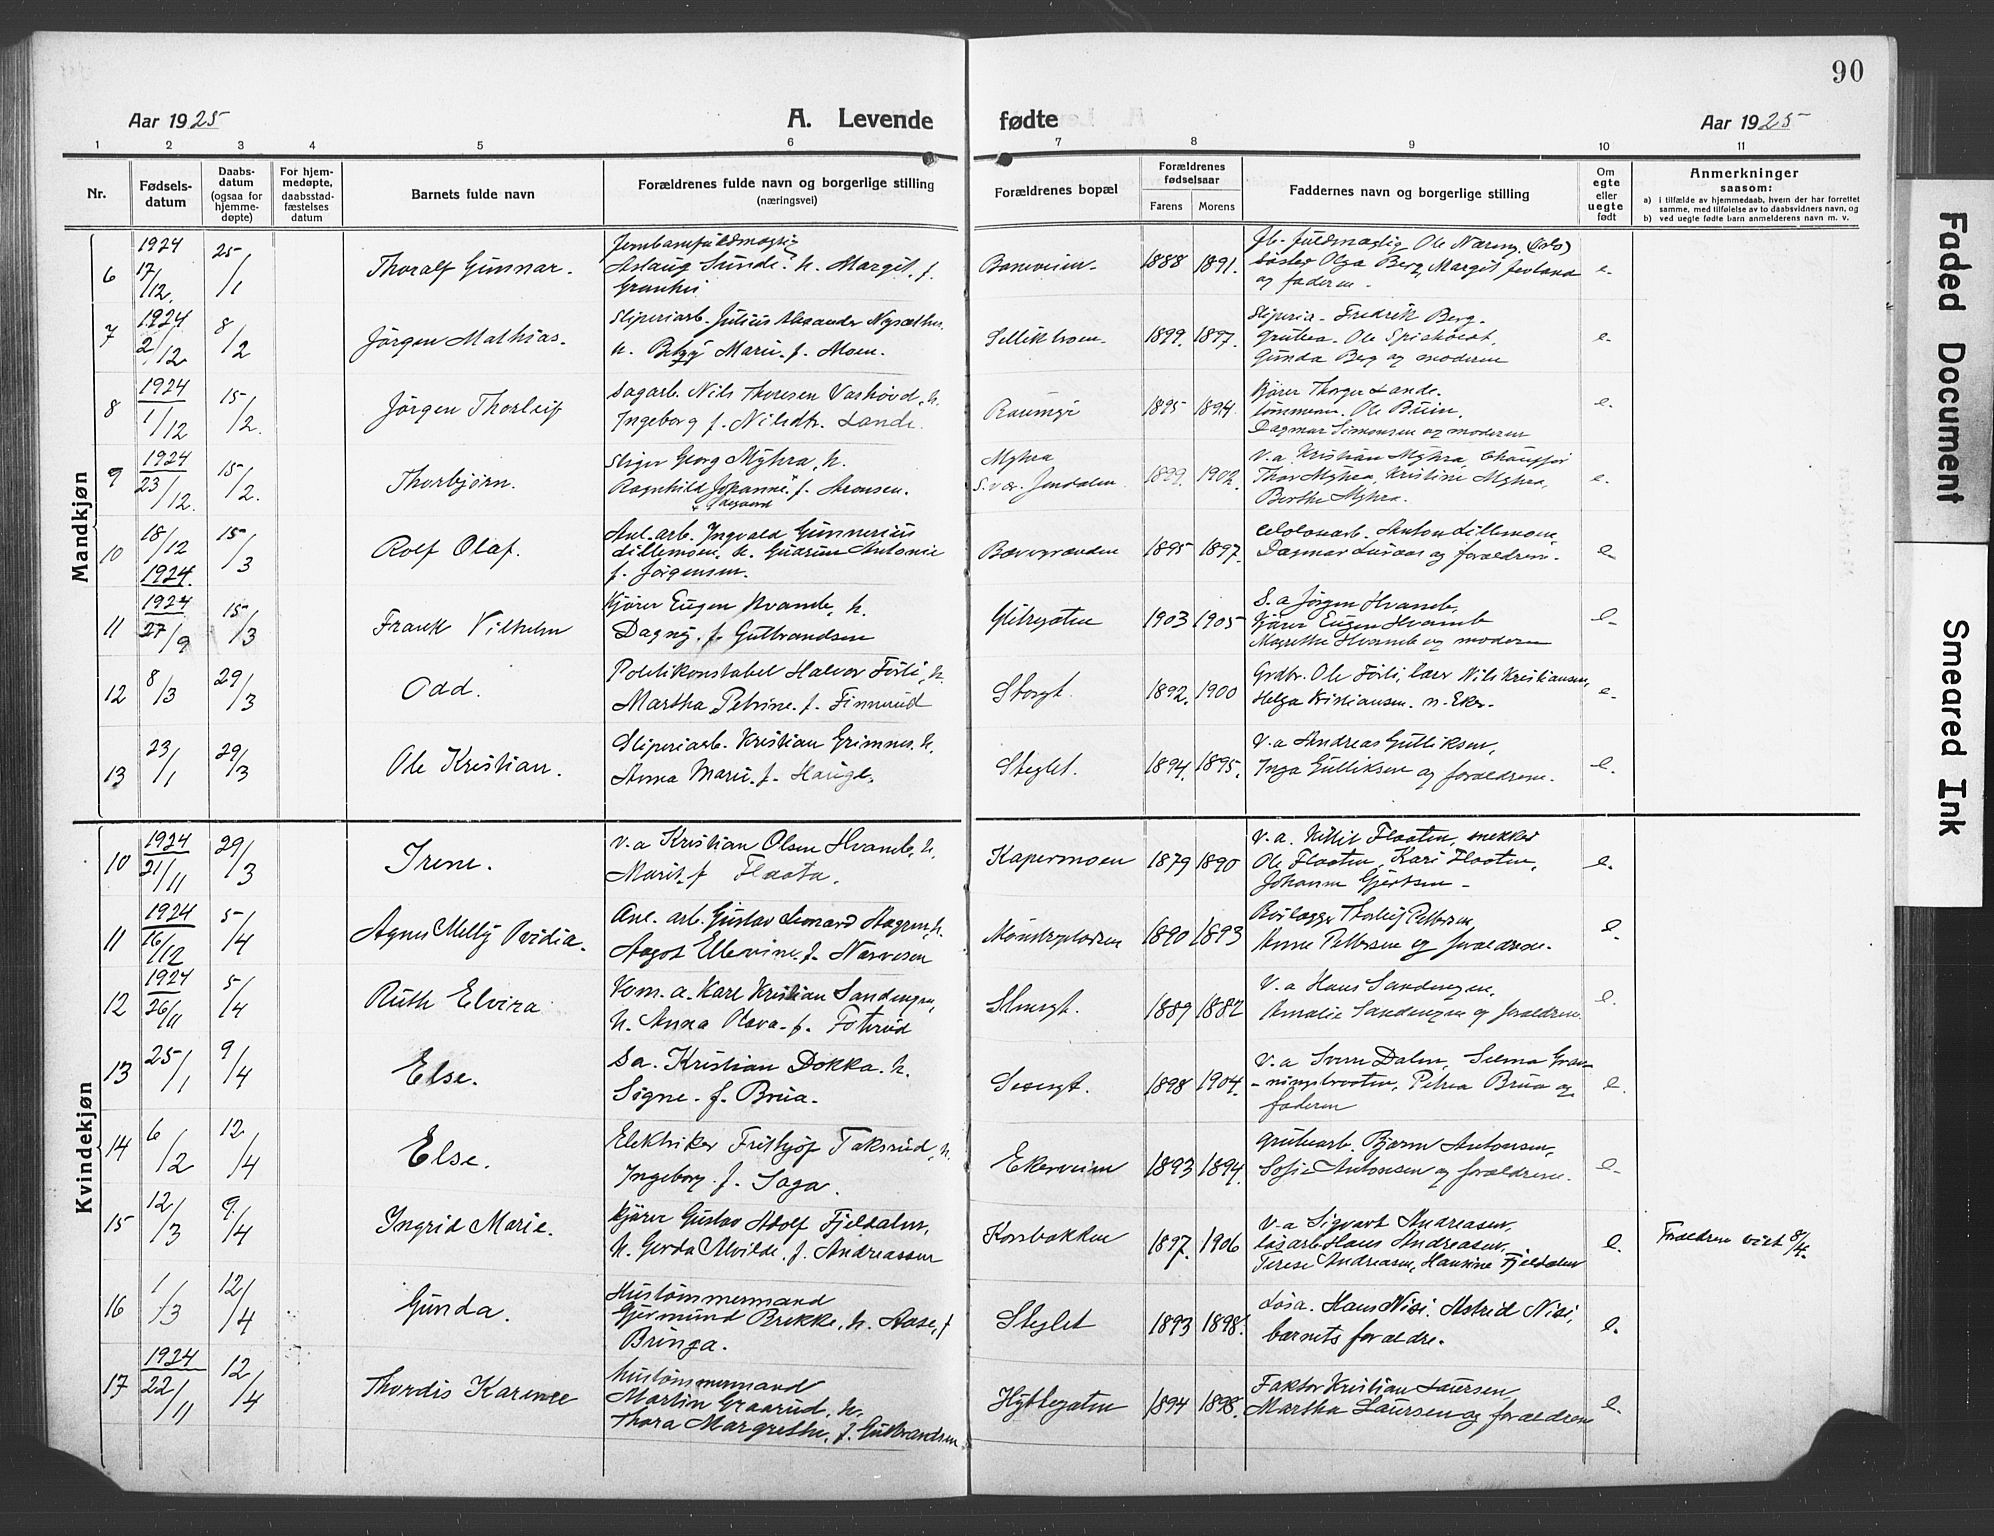 90
Aar 1925
A. Levende
fødte
Aar 1925
1 2 3 4 5 6 7 8 9 10 11
Nr.
Fødsels-
datum
Daabs-
datum
(ogsaa for
hjemme-
døpte)
For hjem-
medøpte,
daabsstad-
fæstelses
datum
Barnets fulde navn
Forældrenes fulde navn og borgerlige stilling
(næringsvei)
Forældrenes bopæl
Forældrenes
fødselsaar
Farens Morens
Faddernes navn og borgerlige stilling
Om
egte
eller
uegte
født
Anmerkninger
saasom:
a) i tilfælde av hjemmedaab, hvem der har forrettet
samme, med tilføielse av to daabsvidners navn, og
b) ved uegte fødte barn anmelderens navn m. v.
Mandkjøn
6 1924 17/12 25/1 Thoralf Gunnar.
Aslaug Sunde. h. Margit, f.
Baneveien 1888 1891.
og faderen
e.
7 1924 2/12 8/2 Jörgen Mathias.
Sliperiarb. Julius Alexander
h. Marie f. Moen.
1899. 1897.
Fredrik Berg.
Gunda Berg og moderen
e.
8 1924 1/12 15/2 Jörgen Thorleif
Sagarb. Nils Thoresen Vashovd, h.
Ingeborg f. Nilsdtr. Lande.
Raumyr 1895 1894.
Kjører Thorger Lande.
Ole Buin,
Dagmar Simonsen og moderen
e.
9 1924 23/12. 15/2. Thorbjørn.
Sliper Georg Myhra, h.
Ragnhild Johanne f. Aronsen.
Myhra
Jondalen 1899. 1902.
V.a. Kristian Myhra, Chauffør
Thor Myhra, Kristine Myhra,
Berthe Myhra.
e.
10 18/12 1924. 15/3 Rolf Olaf.
Anl. arb. Ingvald Gunnerius
Lillemoen, h. Gudrun Antonie
f. Jørgensen.
Bævergrænden 1895 1897.
Anton Lillemoen,
Dagmar og forældrene.
e
11 1924 27/9 15/3 Frank Vilhelm
Kjører Eugen Hvamb, h.
Dagny. f. Gulbrandsen
Glitregaten 1903 1905
S.a Jørgen Hvamb,
Kjører Eugen Hvamb
Magrethe Hvamb og moderen
e.
12 8/3 29/3 Odd.
Politikonstabel Halvor Førli, h.
Martha Petrine. f. Finnerud
Storgt. 1892. 1900
Grdbr. Ole Førli, lærer Nils Kristiansen,
Helga Kristiansen. n. Eker.
e.
13 23/1 29/3 Ole Kristian.
Sliperiarb. Kristian Grimnes, h.
Anna Marie f. Hauge.
Steglet. 1894. 1895.
V.a Andreas Gulliksen,
Inga Gulliksen og forældrene.
e.
Kvindekjøn
10 1924 21/11 29/3 Irene.
V.a Kristian Olsen Hvamb, h.
Marit. f Flaata.
Kapermoen 1879 1890
V.a. Kittil Flaaten, snekker
Ole Flaaten, Kari Flaaten,
Johanne Gjertsen
e.
11 1924 16/12 5/4 Agnes Melly Ovidia.
Anl. arb. Gustav Leonard Aagren, h.
Aagot Ellevine, f. Narvesen
1890 1893
Rørlægger Thorleif Pettersen,
Anne Pettersen og forældrene.
e.
12 1924 26/11 5/4 Ruth Elvira
Kom. a. Karl Kristian Sandengen,
h. Anna Olava. f.
1889 1882
V.a Hans Sandengen,
Amalie Sandengen og forældrene.
e.
13 25/1 9/4 Else.
Sa. Kristian Dokka. h.
Signe. f. Brua.
1898 1904.
V.a Sverre Dalen, Selma Grøn-
Petrea Brua og
faderen
e.
14 6/2 12/4 Else.
Elektriker Frithjof Taksrud, h.
Ingeborg. f. Saga.
Ekerveien 1893 1894.
Grubearb. Bjarne Antonsen,
Sofie Antonsen og forældrene.
e.
15 12/3 9/4 Ingrid Marie.
Kjører Gustav Adolf Fjeldalen,
h. Gerda Alvilde. f. Andreassen
Korsbakken 1897. 1906
V.a Sigvart Andreasen,
løsarb Hans Andreasen,
Terese Andreasen, Hansine Fjeldalen
e.
Forældrene viet 8/4.
16 1/3 12/4 Gunda.
Hustømmermand
Gjermund Brekke, h. Aase, f
Bringa.
Steglet 1893 1898.
Løsa. Hans Nisi. Astrid Nisi,
barnets forældre.
e.
17 1924 22/11 12/4 Thordis Karense
Hustømmermand
Martin Graarud, h.
Thora Margrethe, f. Gulbrandsen
Hyttegaten 1894 1898.
Faktor Kristian Laursen,
Martha Laursen og forældrene
e.
Faded Document
Smeared Ink